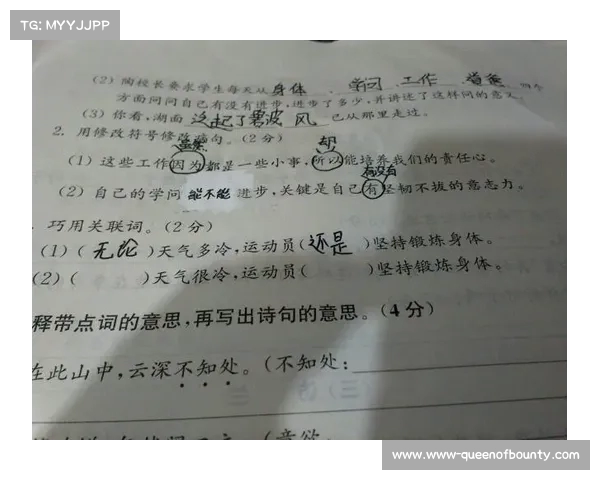 TG: MYYJJPP
(2) 陶校长要求学生每天从 身体 、学问、工作、道德 四个
方面问问自己有没有进步,进步了多少,并讲述了这样问的意义。
(3) 你看,湖面 泛起了碧波 风 已从那里走过。
2. 用修改符号修改病句。(2分)
虽然 却
(1) 这些工作因为都是一些小事,所以能培养我们的责任心。
有没有
(2) 自己的学问 能不能 进步,关键是自己有坚韧不拔的意志力。
巧用关联词。(2分)
(1) ( 无论 )天气多冷,运动员( 还是 )坚持锻炼身体。
(2) ( )天气很冷,运动员( )坚持锻炼身体。
释带点词的意思,再写出诗句的意思。(4分)
在此山中,云深不知处。(不知处:
www-queenofbounty.com